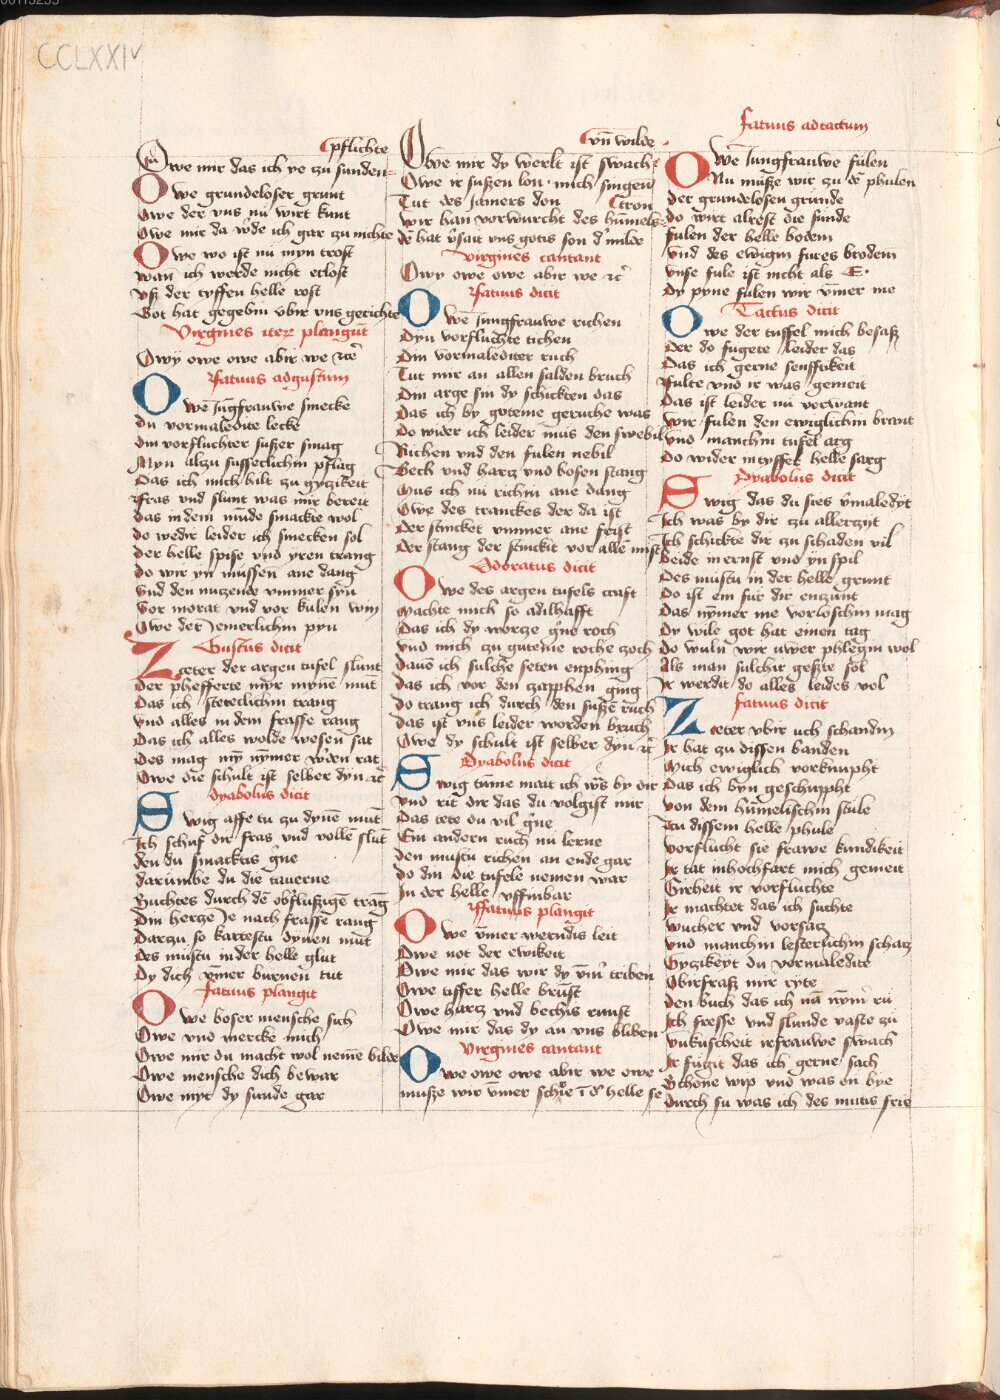 CCLXXIV
pflichte
Owe mir das ich ye zu sunden
Owe grundeloser grunt
Owe der vns nu wirt kunt
Owe mir da w̾de ich gar zu nichte
Owe wo ist nu myn trost
wan ich werde nicht erlost
vß der tyffen helle rost
Got hat gegebin vbir vns gerichte
Virgines iteꝝ plangūt
Owy owe owe abir we ⁊cͤ
Fatuus ad gustum
Owe iūgfrauwe smecke
Du vormaledite lecke
Din vorfluchter sußer smag
Myn alzu susseclichin pflag
Das ich mich hilt zu gyzikeit
Fras vnd slunt was mir bereit
das in dem mūde smackte wol
do wedir leider ich smecken sol
der helle spise vnd yren trang
do wir yn mussen ane dang
vnd den nuzende vmmer syn
vor morat vnd vor kulen win
Owe der Jemerlichin pyn
Gustus dicit
Zceter der argen tufel slunt
Der phefferte myr mynē mūt
Das ich steteclichin trang
vnd alles in dem frasse rang
Das ich alles wolde wesen sat
Des mag mȳ nȳmer w̾den rat
Owe die schult ist selber dyn ⁊c̄
dyabolus dicit
Swig affe tu zu dynē mūt
Ich schuf dir fras vnd vollē slūt
den du smacktis g̾ne
darumbe du die tauerne
Suchtes durch dē obflußigē trāg
Din herze Je nach frasse rang
Darzu so kartestu dynen mūt
Des mustu in der helle glut
Dy dich ȳmer burnen tut
Fatuus plangit
Owe boser mensche sich
Owe vnd mercke mich
Owe mir du macht wol nemē bilde
Owe mensche dich bewar
Owe myr dy sunde gar
vn̄ wilde
Owe mir dy werlt ist swach
Owe ir sußen lon mich singen
Tut des jamers don
tron
wir han vorwurcht des hūmels
dē hat v̾sait vns gotis son d̾ milde
virgines cantant
Owy owe owe abir we ⁊c̄
Fatuus dicit
Owe Jungfrauwe richen
Dyn vorfluchte tichen
Din vormalediter ruch
Tut mir an allen salden bruch
Din arge sin dy schickten das
Das ich by guteme geruche was
Do wider ich leider mus den swebil
Richen vnd den fulen nebil
Bech vnd harcz vnd bosen stang
Mus ich nu richin ane dang
Owe des tranckes der da ist
Der stincket vmmer ane frist
Der stang der stinckit vor allē mist
Odoratus dicit
Owe des argen tufels craft
Machte mich so adilhafft
Das ich dy worcze g̾ne roch
vnd mich zu guteme roche zoch
Davō ich sulche seten enphing
das ich vor den zcapphen ging
do trang ich durch den sußē ruch
das ist vns leider worden bruch
Owe dy schult ist selber dyn ⁊c̄
Dyabolus dicit
Swig tūme mait ich w̾s by dir
vnd rit dir das du volgist mir
Das tete du vil g̾ne
Ein andern ruch nu lerne
den mustu richen an ende gar
do din die tufele nemen war
In der helle vffinbar
Fatuus plangit
Owe ȳmer werndis leit
Owe not der ewikeit
Owe mir das wir dy v̄m̾ triben
Owe tiffer helle brūst
Owe harcz vnd bechis runst
Owe mir das dy an vns bliben
Virgines cantant
Owe owe owe abir we owe
muße wir v̄mer schrie ī d̾ helle se
Fatuus ad tactum
Owe Jungfrauwe fulen
Nu muße wir zu d̾ phulen
Der grundelosen grunde
do wirt alrest die sunde
fulen der helle bodem
vnd des ewigin fures brodem
vnse fule ist nicht als E
Dy pyne fulen wir v̄mer me
Tactus dicit
Owe der tuffel mich besaß
Der do fugete leider das
Das ich gerne senfftikeit
Fulte vnd ir was gemeit
Das ist leider nu vorwant
wir fulen den ewiglichin brant
vnd manchin tufel arg
Do wider in tyffer helle sarg
Dyabolus dicit
Swig das du sies v̾maledyt
Ich was by dir zu allerzyt
Ich schickte dir zu schaden vil
Beide in ernst vnd yn spil
Des mustu in der helle grunt
Do ist ein fur dir enzunt
Das nȳmer me vorloschin mag
Dy wile got hat einen tag
Do wuln wir uwer phlegin wol
Als man sulchir geste sol
Ir werdit do alles leides vol
Fatuus dicit
Zceter vbir uch schandin
Ir hat zu dissen banden
Mich ewiglich vorknupht
Das ich byn geschupht
von dem hūmelischin stule
Zu dissem helle phule
vorflucht sie frawe kundikeit
Ir tat in hochfart mich gemeit
Girheit ir vorfluchte
Ir machtet das ich suchte
wucher vnd vorsacz
vnd manchin lesterlichin schacz
Gyzikeyt du vormaledite
Obirfraß mir ryte
Den buch das ich nā nȳm̾ rū
Ich fresse vnd slunde vaste zu
vnkuscheit ir frauwe swach
Ir fugit das ich gerne sach
Schone wip vnd was on bye
Durch su was ich des mutis frie